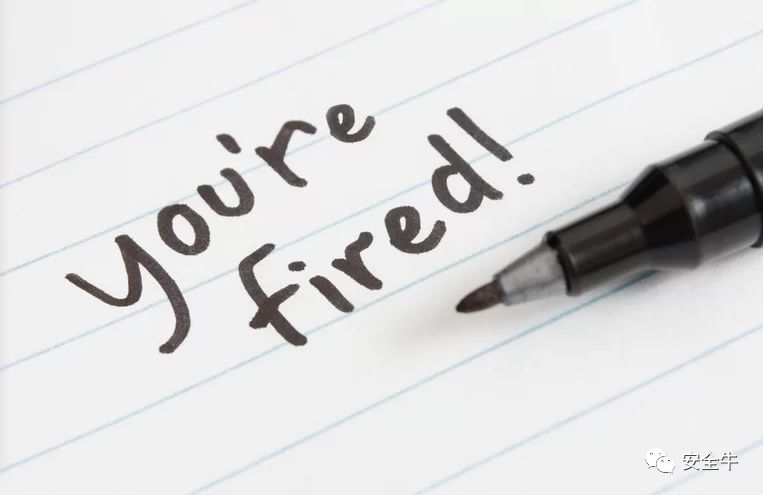 you're
fired!
安全牛